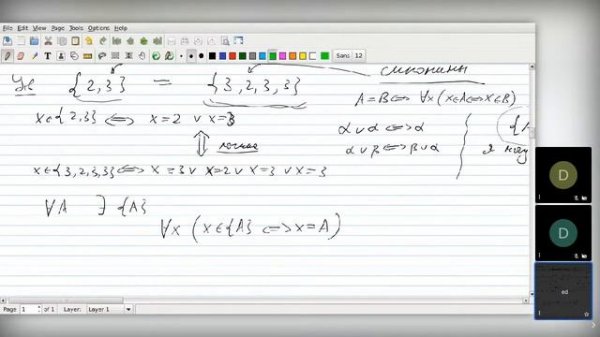 File Edit View Page Tools Options Help
Sans 12
Ув {2,3} = {3,2,3,3} синонимы
A=B⇔∀x(x∈A⇔x∈B)
x∈{2,3} ⇔ x=2 ∨ x=3
α∨α⇔α
α∨β⇔β∨α
{A
я могу
логика
x∈{3,2,3,3}⇔ x=3∨ x=2∨ x=3 ∨ x=3
∀A ∃ {A}
∀x (x∈{A} ⇔x=A)
D
D
ed
Page 1 of 1 Layer: Layer 1